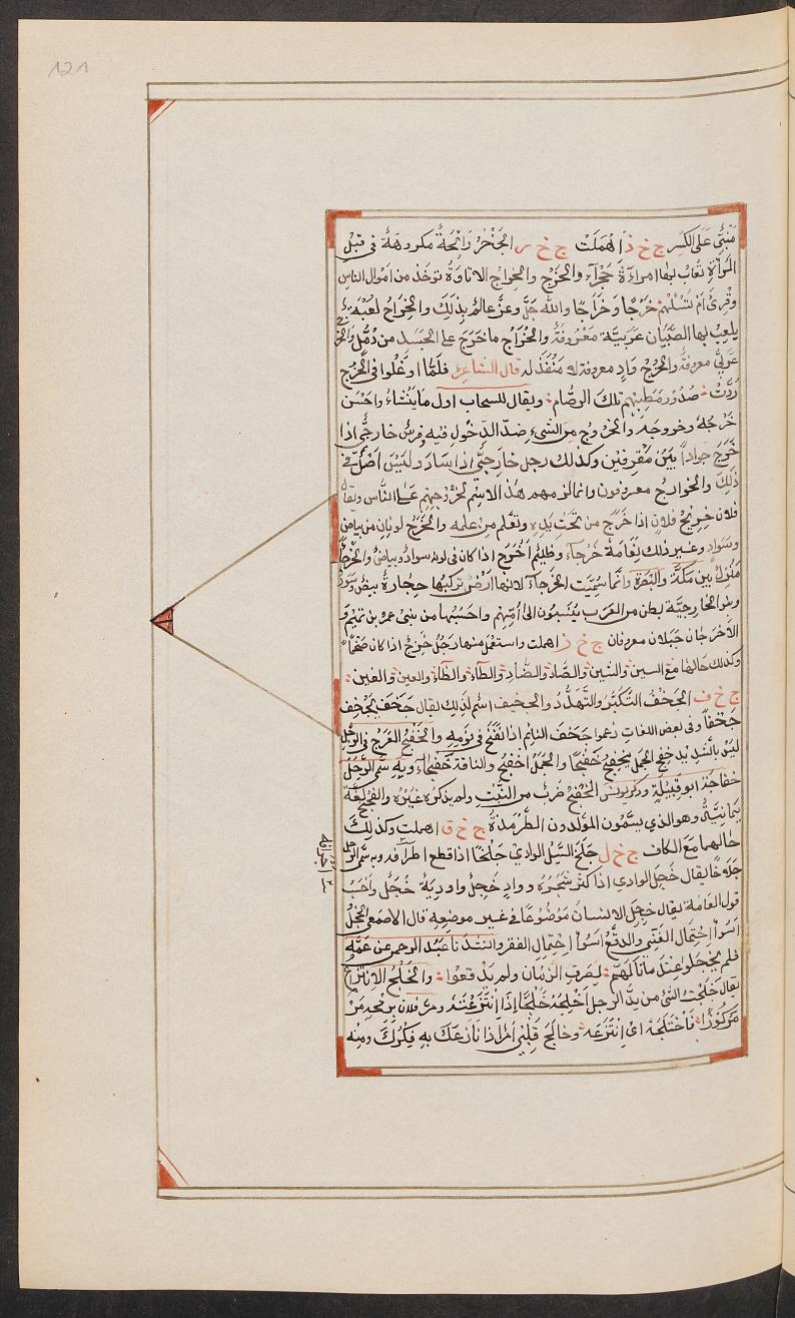 121
مَبْنِيٌّ عَلَى الكَسْرِ ج خ ذ اُهْمِلَتْ ج خ ر الجَخَرُ رَائِحَةٌ مَكروهَةٌ في قُبُلِ
المَرْأَةِ تُعَابُ بِهَا امراءَةٌ جَخْرَآءُ والخَرْجُ والخَراجُ الاتاوَةُ تُوخَذ من اَمْوَالِ الناسِ
وقُرِئَ اَمْ تَسْئَلُهُمْ خَرْجًا وَخَرَاجًا واللّٰه جَلَّ وعزَّ عالِمٌ بِذَلِكَ والخَرَاجُ لُعْبَةٌ
يلعبُ بها الصِّبْيَان عَرَبيَّة مَعْرُوفَةٌ والخُرَاجُ ماخَرَجَ على الجَسَدِ من دُمَّلٍ والخُرْجُ
عَرَبيٌّ معروفٌ والخَرْجُ وَادٍ معروف لا مَنْفَذَ له قال الشاعر فلَمَّا اوغَلُوا في الخَرْجِ
رَدَّتْ صُدُورَ مَطِيِّهِم تلك الرضام ويقال للسحاب اول مَايَنْشَاءُ واحْسَنَ
خَرْجَهُ وخروجَهُ والخروجُ من الشيءِ ضِدّ الدخُولِ فيه وفرسٌ خارجيٌّ اذا
خَرَجَ جوادًا بَيْنَ مُقْرِفَيْنِ وكذلك رجل خارجيٌّ اذا سَادَ ولَيْسَ لَهُ اَصْلٌ في
ذلِكَ والخوارجُ معروفون وانما لزمهم هَذا الاسْمُ لخُرُوجِهِم عَلى النَّاس ويقال
فلان خِرِّيجُ فُلانٍ اذا خَرَجَ من تَحْتِ يَدِهِ وتعَلّم من علمِهِ والخَرَجُ لونَانِ من بياضٍ
وسَوادٍ وغَيرِ ذلك نَعَامَةٌ خَرْجآءُ وظَلِيمٌ اَخْرَجُ اذا كان في لونه سوادٌ وبياضٌ والخَرْجَآءُ
مَنْزِلٌ بَيْنَ مَكّةَ والبَصْرَةِ وانَّما سُمّيَت الخَرْجآءَ لانها اَرْضٌ تركبُها حِجارَةٌ بيضٌ وَسودٌ
وبنو الخارجيَّة بطن من العَرَب يُنْسَبُونَ الى اُمِّهِم واحْسَبُها من بنى عمرو بن تميم و
الاَخرَجَان جَبَلان معروفان ج خ ز اهملت واستعْمِلَ منها رَجُلٌ خَزِجٌ اذا كان ضَخْمًا
وكذلك حَالُها مَعَ السِين والشّين والصَّاد والضَّاد والطّاء والظّاء والعين والغين
ج خ ف الجَخْفُ التَّكَبُّرُ والتَّهَدُّد والجخيف اسْمٌ لذلِكَ يقال جَخَفَ يَجْخِف
جَخْفًا وفي بعض اللغات زعموا جَخَفَ النائِمُ اذا نَفَخَ في نَومِهِ والخَفَجُ العَرَجُ في الرِّجْلِ
لَيْسَ بالشَّديد خَفِجَ الجمل يَخْفَجُ خَفَجًا والجَمَلُ اَخْفَجُ والناقَةُ خَفْجَاءُ وَبِهِ سُمِّيَ الرَّجُلُ
خفَاجَة ابو قبيلةٍ وذَكرَ يونس الخَفَجُ ضَربٌ من النَّبْتِ ولم يَذكُرْهُ غَيْرُهُ والفَجْخُ لغةٌ
يمانيَّةٌ وهو الذي يسمّون المُوَلّدون الطَّرْمَذَةُ ج خ ق اهملت وكذلك
حالهما مَعَ الكاف ج خ ل جَلَخَ السَّيْلُ الوادِيَ جَلْخًا اذا قطع اطرافه وبه سُمّيَ الرجل
جَلَّاخًا يقال خَجِلَ الوادي اذا كثر شَجَرُهُ ووادٍ خَجِلٌ واوديَةٌ خُجْلٌ واَحْسِبُ
قول العامّةِ يقال خجِلَ الانسانُ مَوْضُوعًا في غيرِ موضعِهِ قال الاصمعي الخجَلُ
اَسْوَاُ احْتِمَال الغَنِيِّ والدقَعُ اَسْوَاُ احْتِمالِ الفقر وانشد نا عَبْدُ الرحمن عن عَمِّهِ
فلم يَخْجَلوا عِنْدَ مَانَالَهُمْ لصَرْفِ الزمَان ولم يَدْقَعُوا والخَلْجُ الانتزاعُ
يقال خَلَجْتُ الشيَ من يدِ الرجل اَخْلِجُهُ خَلْجًا اِذَا انْتَزَعْتَهُ ومرّ فلان برمحهِ
مَرْكُوزًا فَاخْتَلَجَهُ اي انْتَزَعَهُ وخالَجَ قَلْبِي اَمْرٌ اذا نَازَعَكَ بِهِ فِكْرُكَ ومنه